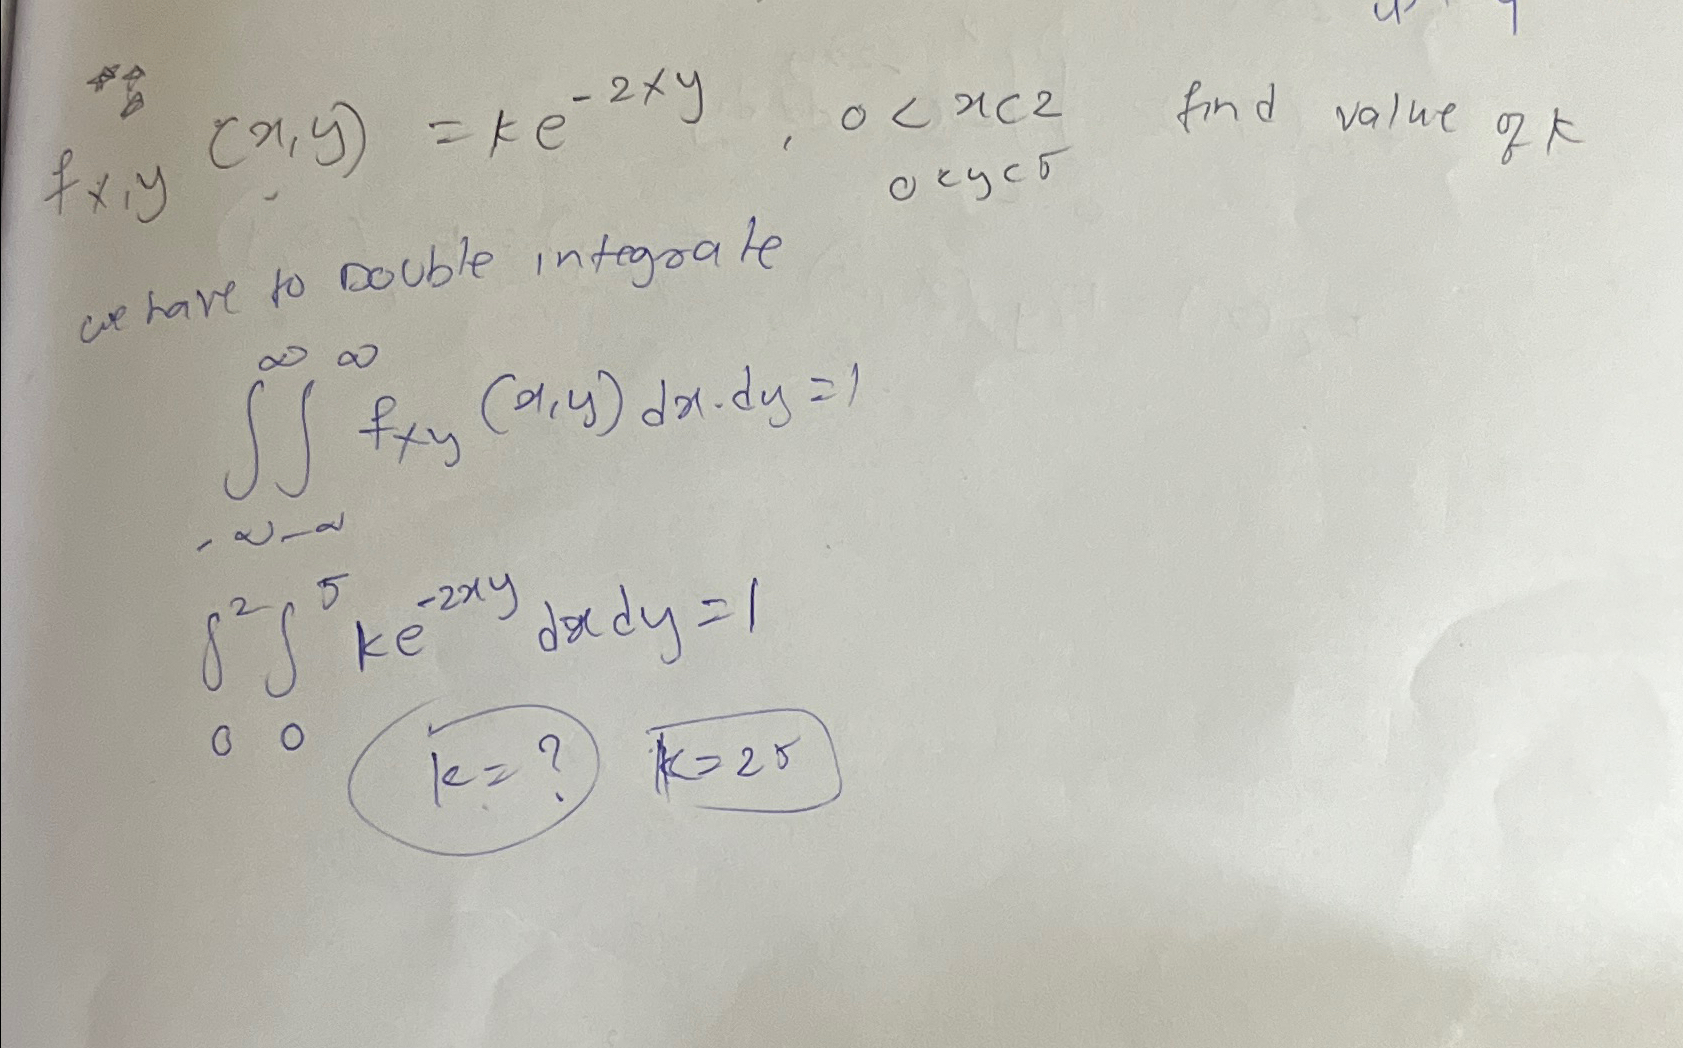 f_{x,y} (x,y) = k e^{-2xy} , 0 < x < 2 find value of k
0 < y < 5
we have to Double integrate
∫_{-∞}^{∞} ∫_{-∞}^{∞} f_{xy} (x,y) dx.dy = 1
∫_0^2 ∫_0^5 k e^{-2xy} dx dy = 1
k = ? k = 25